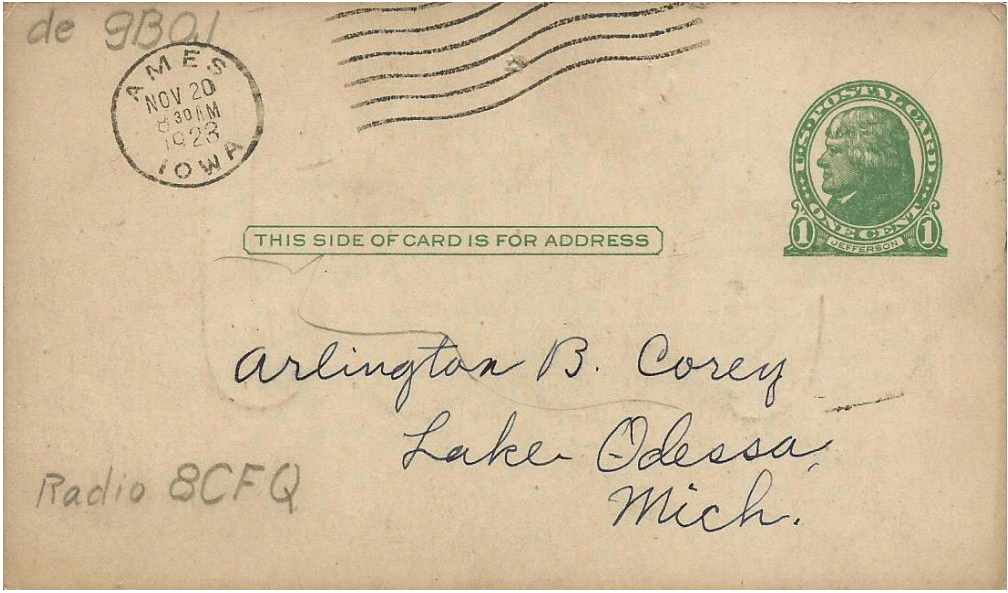 de
AMES
NOV 20
8 30 AM
1923
IOWA
U.S. POSTAL CARD
ONE CENT
1 JEFFERSON 1
THIS SIDE OF CARD IS FOR ADDRESS
Arlington B. Corey
Lake Odessa,
Mich.
Radio 8CFQ